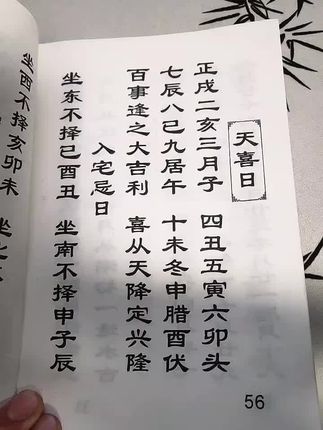 天喜日
正戌二亥三月子 四丑五寅六卯头
七辰八巳九居午 十未冬申腊酉伏
百事逢之大吉利 喜从天降定兴隆
入宅忌日
坐东不择巳酉丑 坐南不择申子辰
56
坐西不择亥卯未 坐北不